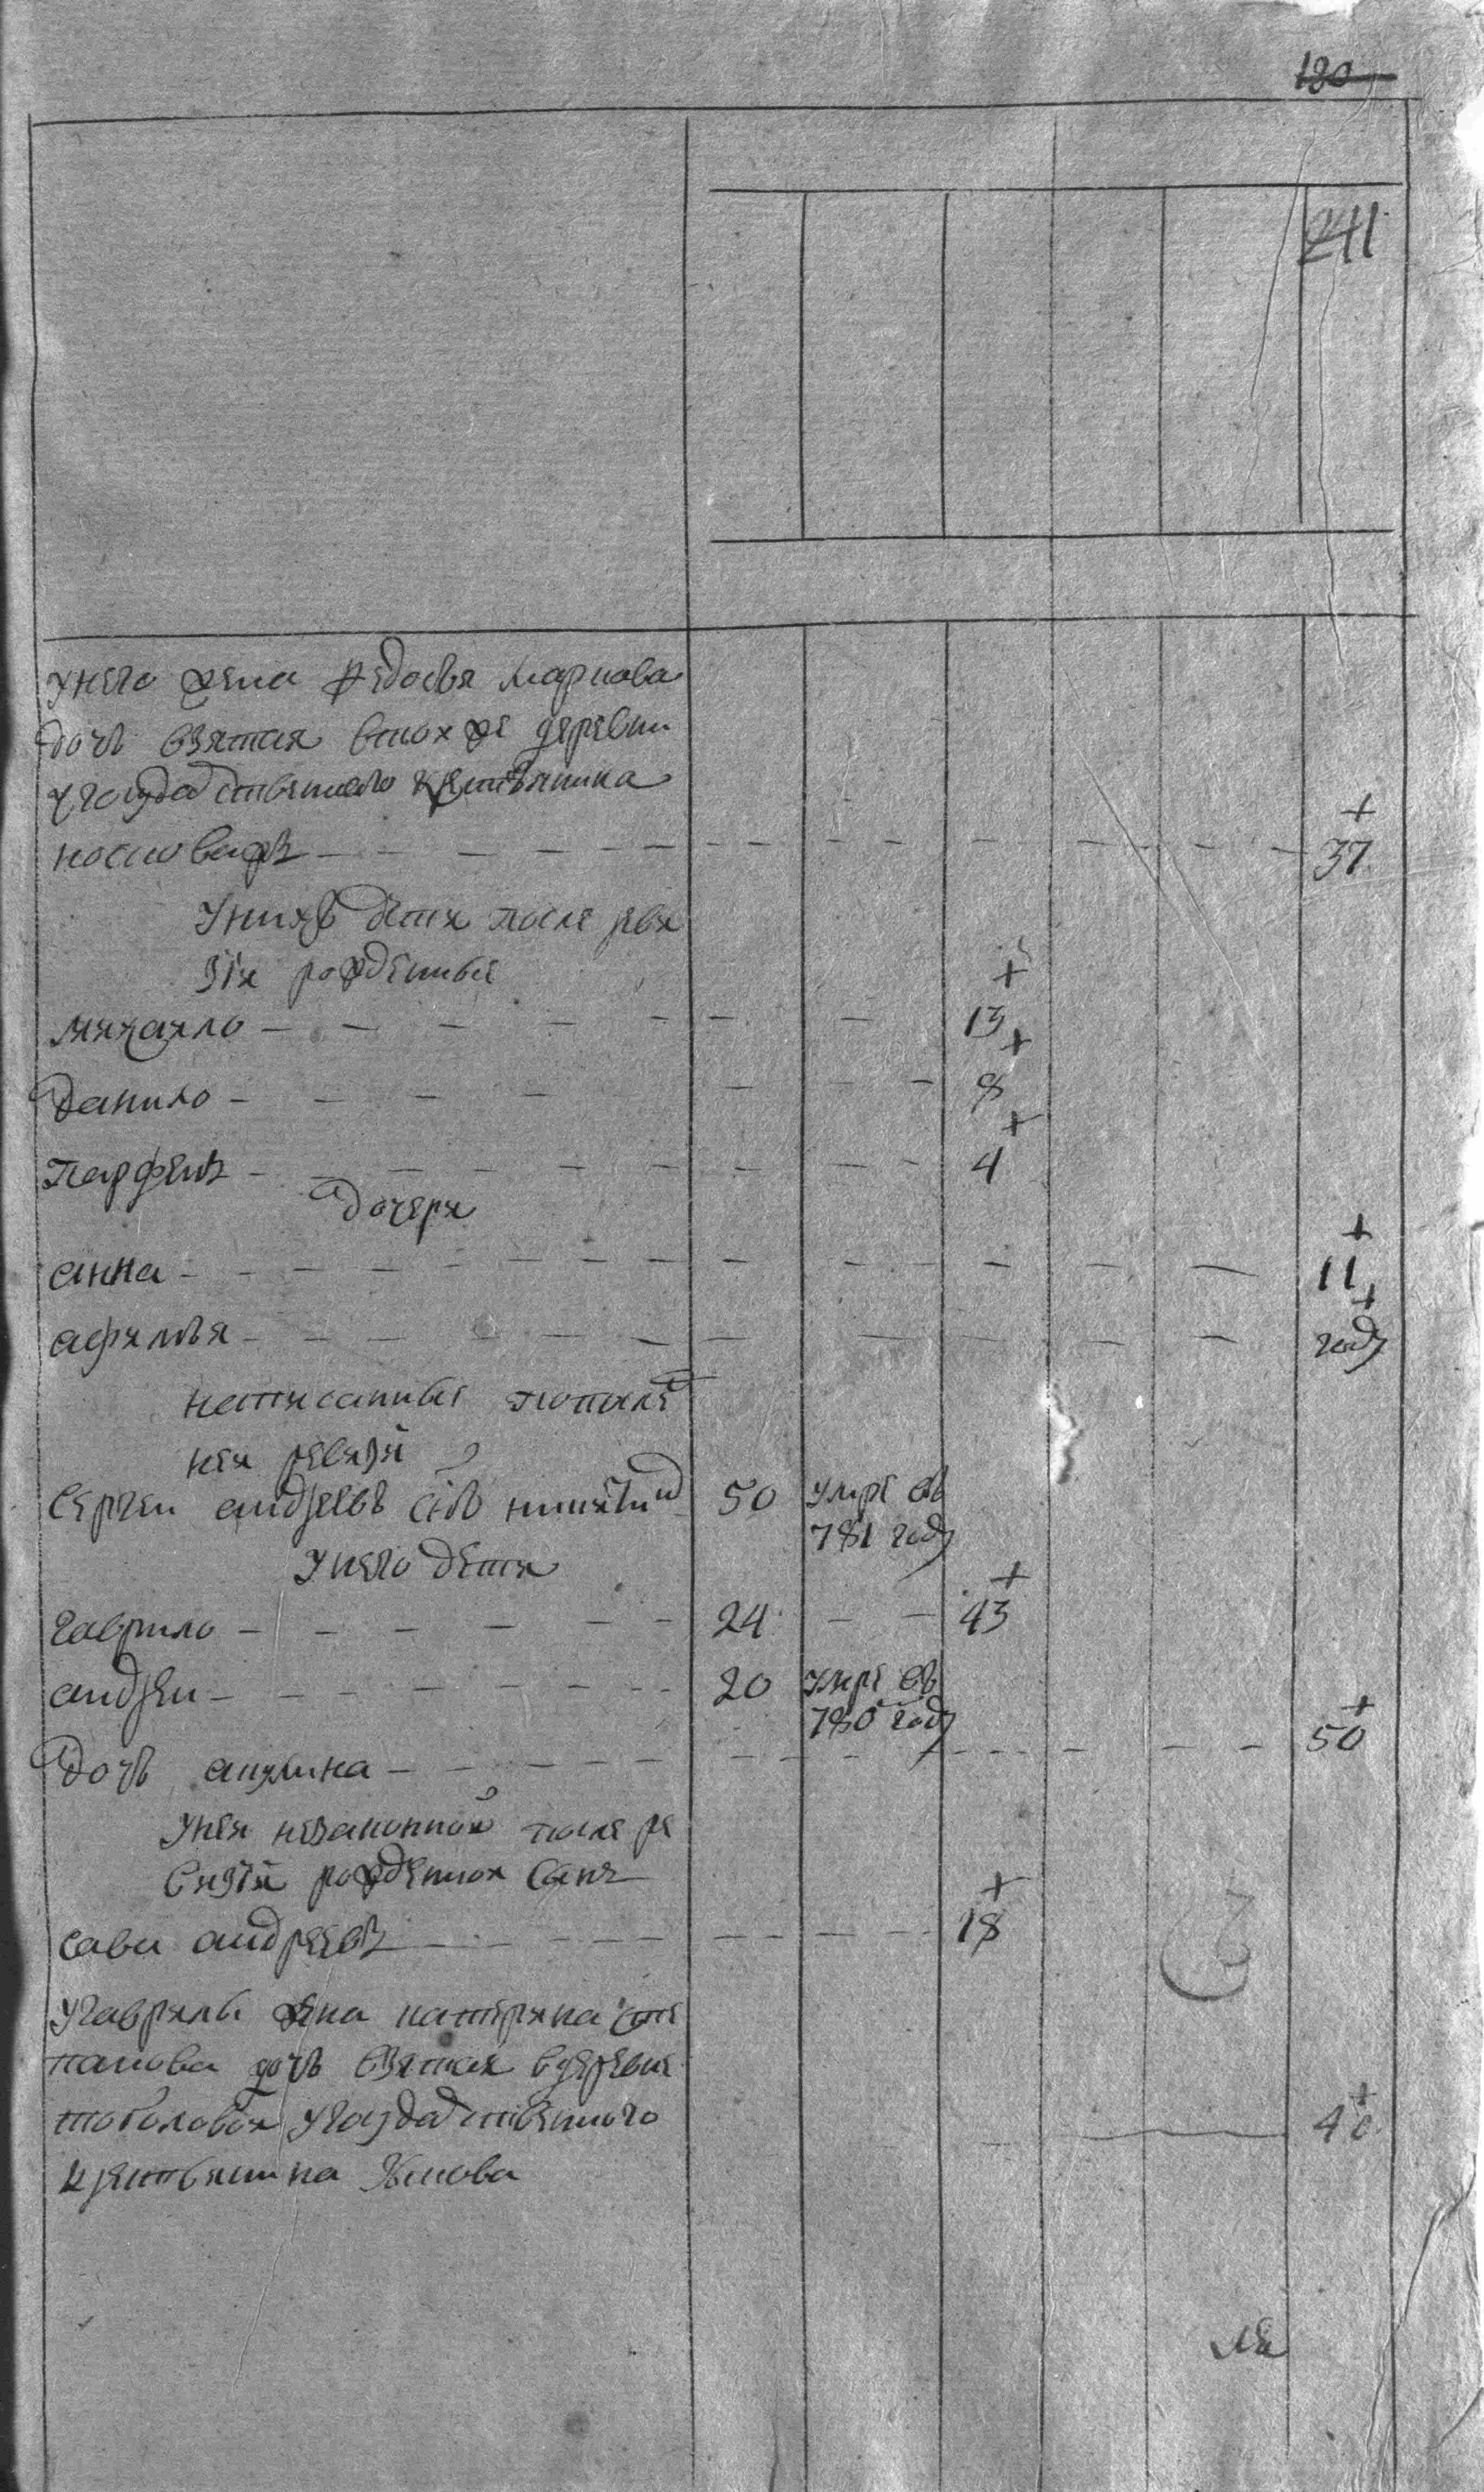 180
241
унего жена федосья маркова
дочь взятая втой же деревни
угосударственного крестьянина
+
37
унихъ дети после реви
зiи рожденные
+
михаило 13
+
данило 8
+
парфенъ 4
дочери
+
анна 11
+
афимья году
написанные попослед
ней ревизiи
сергеи андреевъ сынъ никитин 50 умре въ
781 году
унего дети
+
гаврило 24 43
андреи 20 умре въ
780 году
+
дочь акулина 50
унея незаконнои после ре
визiи рожденнои сынъ
+
сава андреевъ 18
угаврилы жена катерина сте
панова дочь взятая вдеревне
+
тоболовои угосударственного 40
крестьянина